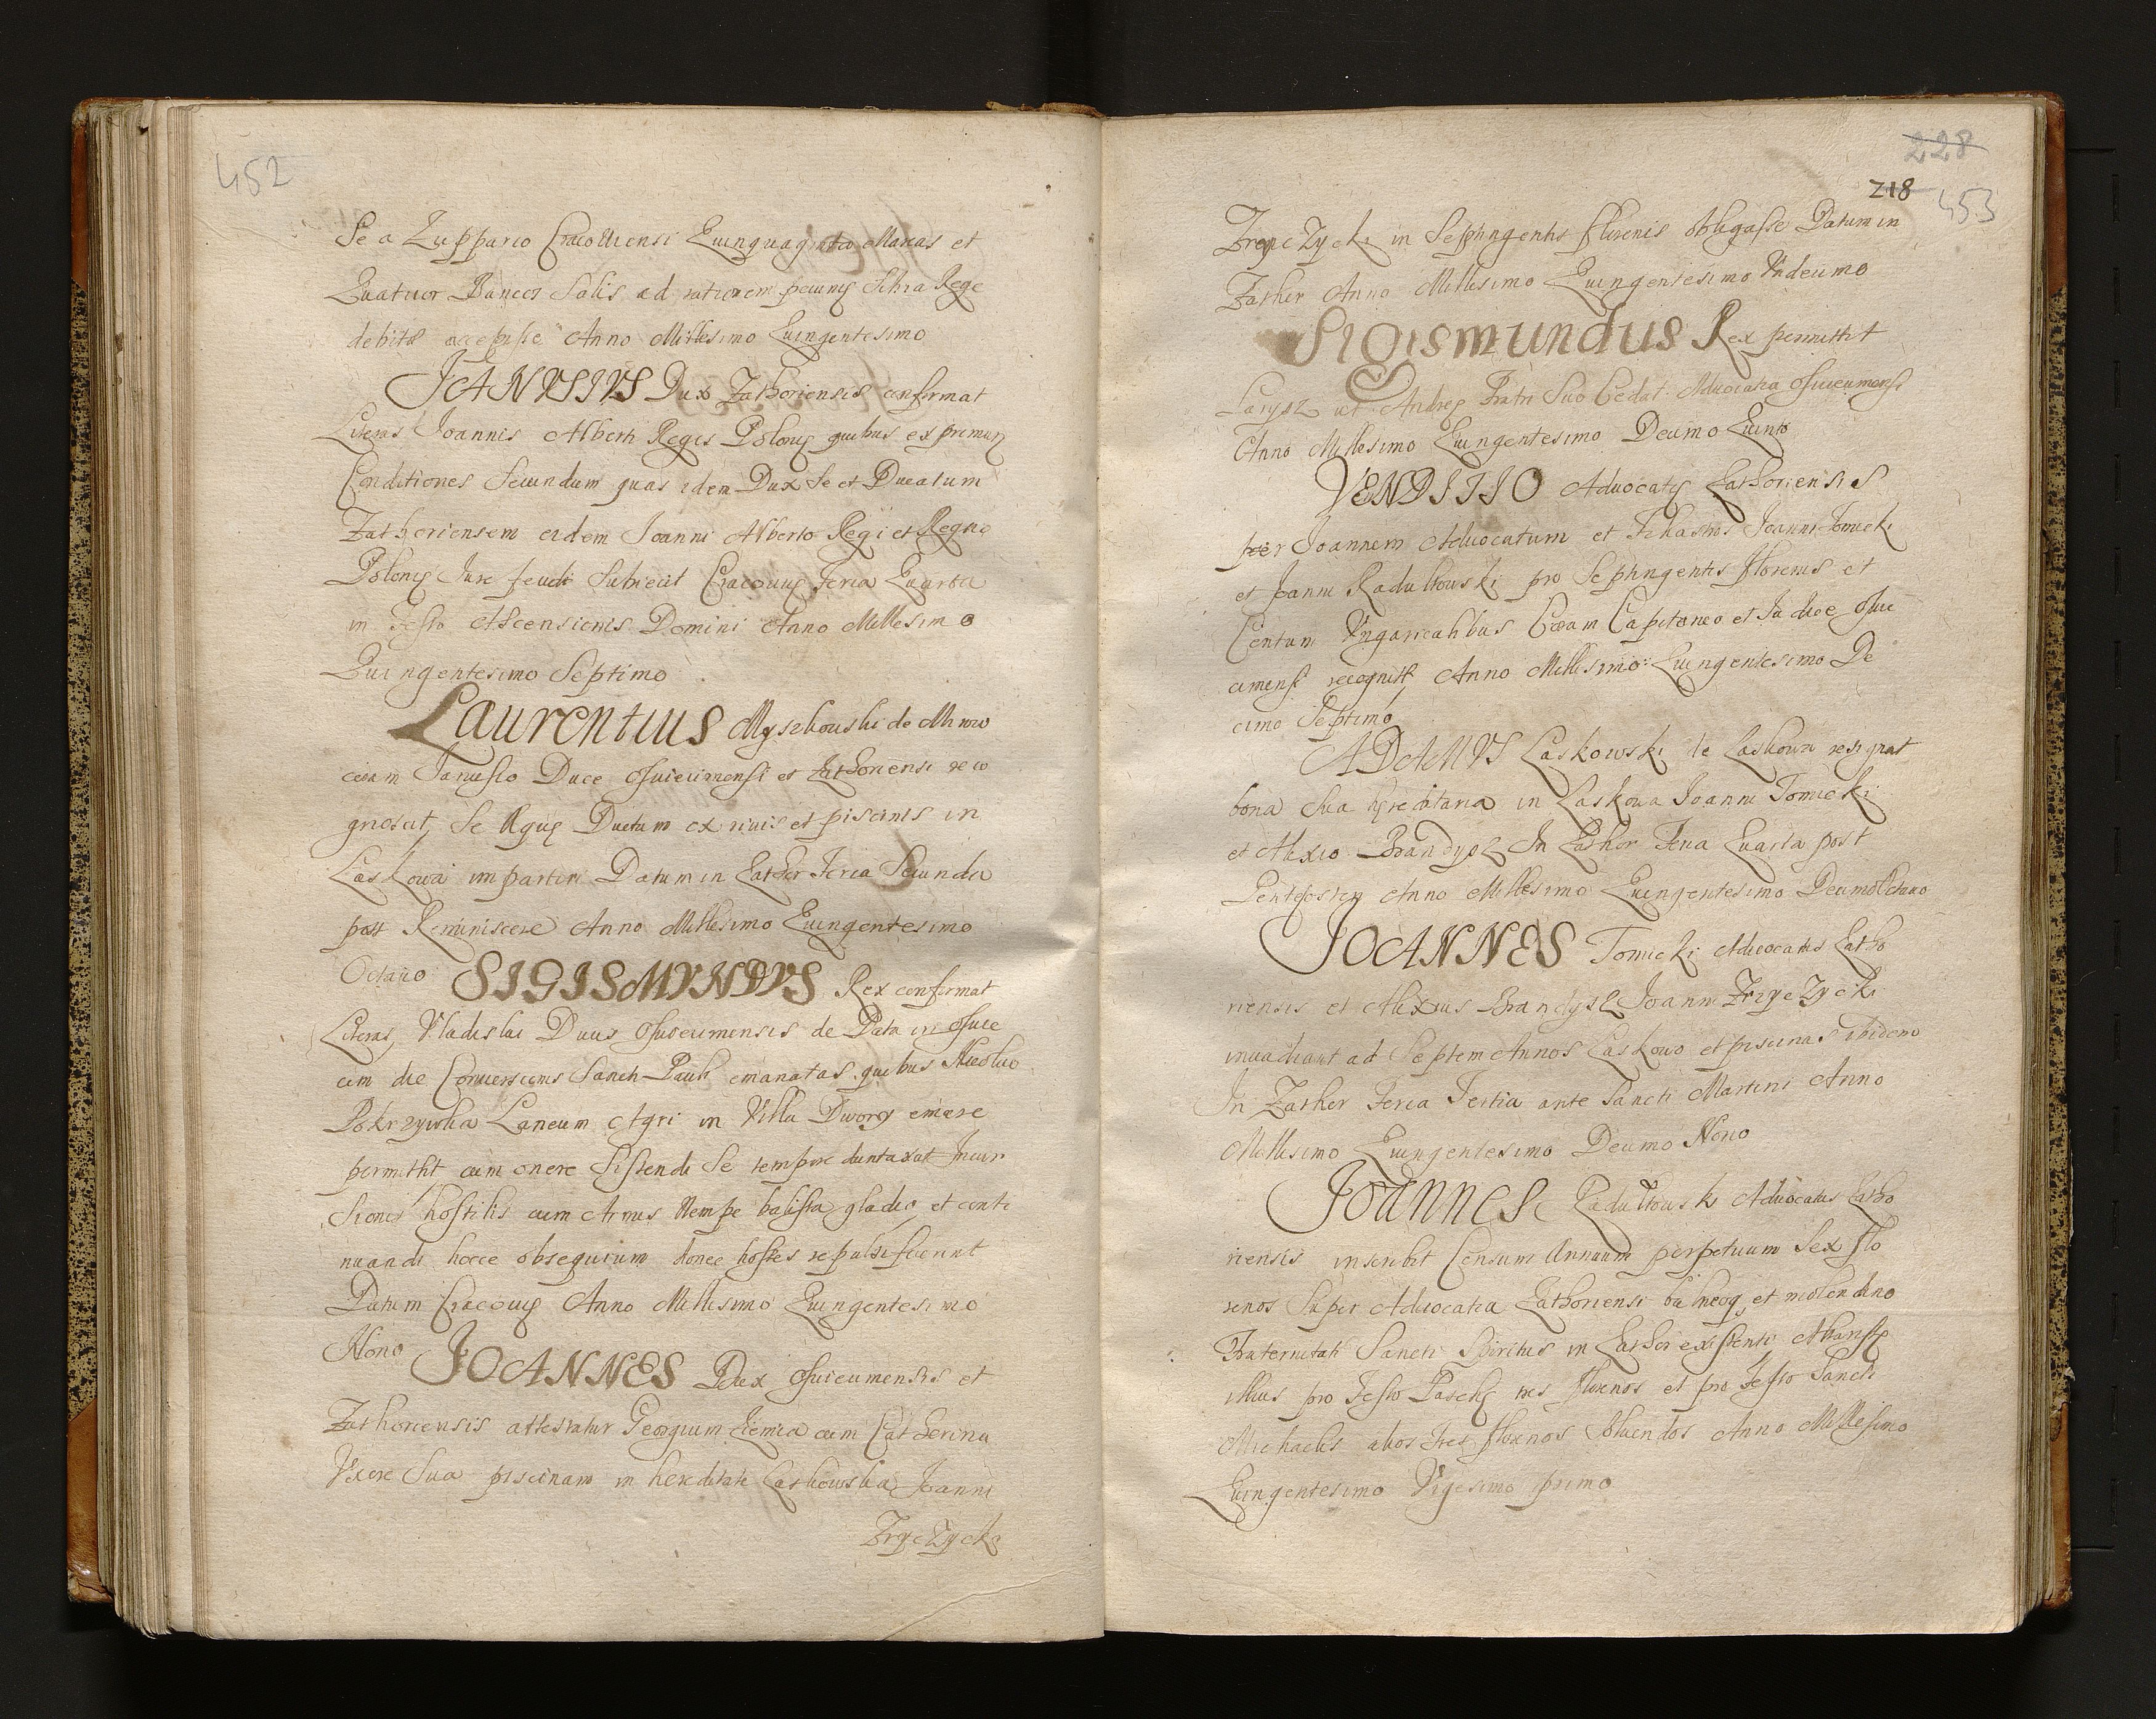 452
Se a Zuppario Cracoviensi Quinquaginta Marcas et
Quatuor Bancos Salis ad rationem pecunię Sibi a Rege
debitę accepisse Anno Millesimo Quingentesimo
JANUSIUS Dux Zathoriensis confirmat
Literas Joannis Alberti Regis Polonię quibus exprimunt
Conditiones Secundum quas idem Dux Se et Ducatum
Zathoriensem eidem Joanni Alberto Regi et Regno
Polonię Jure feudi Subiecit Cracovię Feria Quarta
in Festo Ascensionis Domini Anno Millesimo
Quingentesimo Septimo
Laurentius Myszkowski de Mirow
coram Janusso Duce Osvieczimensi et Zathoriensi reco
gnoscit, Se Aquę Ductum ex rivis et piscinis in
Laskowa impartiri Datum in Zathor Feria Secunda
post Reminiscere Anno Millesimo Quingentesimo
Octavo SIGISMUNDUS Rex confirmat
Literas Vladislai Ducis Osvecimensis de Data in Osvie
cim die Conversionis Sancti Pauli emanatas quibus Nicolao
Pokrzywka Laneum Agri in Villa Dwory emere
permittit cum onere Sistendi Se tempore duntaxat Incur
Sionis hostilis cum Armis Nempe balista, gladio, et conti
nuandi hocce obsequium donec hostes repulsi fuerint
Datum Cracovię Anno Millesimo Quingentesimo
Nono JOANNES Dux Osviecimensis et
Zathoriensis attestatur Georgium Ziemia cum Catherina
Uxore Sua piscinam in hereditate Laskowska Joanni
Trzyczycki
228
218 453
Trzyczycki in Septingentis florenis obligasse Datum in
Zather Anno Millesimo Quingentesimo Undecimo
Sigismundus Rex permittit
Larysz ut Andreę Fratri Suo Cedat Advocatia Osviecimensi
Anno Millesimo Quingentesimo Decimo Quinto
VENDITIO Advocatię Zathoriensis
per Joannem Advocatum et Schasnii Joanni Tomicki
et Joanni Radultowski pro Septingentis florenis et
Centum Ungaricalibus Coram Capitaneo et Judice Osvie
cimensi recognita, Anno Millesimo Quingentesimo De
cimo Septimo
ADAMUS Laskowski de Laskowa resignat
bona Sua hęreditaria in Laskowa Joanni Tomicki
et Alexio Brandysz In Zathor Feria Quarta post
Pentecosten Anno Millesimo Quingentesimo Decimo Octavo
JOANNES Tomicki Advocatus Zatho
riensis et Alexius Brandysz Joanni Trzyczycki
invadiant ad Septem Annos Laskowo et piscinas ibidem
In Zather Feria Tertia ante Sancti Martini Anno
Millesimo Quingentesimo Decimo Nono
Joannes Radultowski Advocatus Zatho
riensis inscribit Censum Annuum perpetuum Sex flo
renos Super Advocatia Zathoriensi balneoq, et molendino
Fraternitati Sancti Spiritus in Zathor existenti,
illius pro Festo Paschę tres florenos et pro Festo Sancti
Michaelis alios tres florenos Solvendos Anno Millesimo
Quingentesimo Vigesimo primo